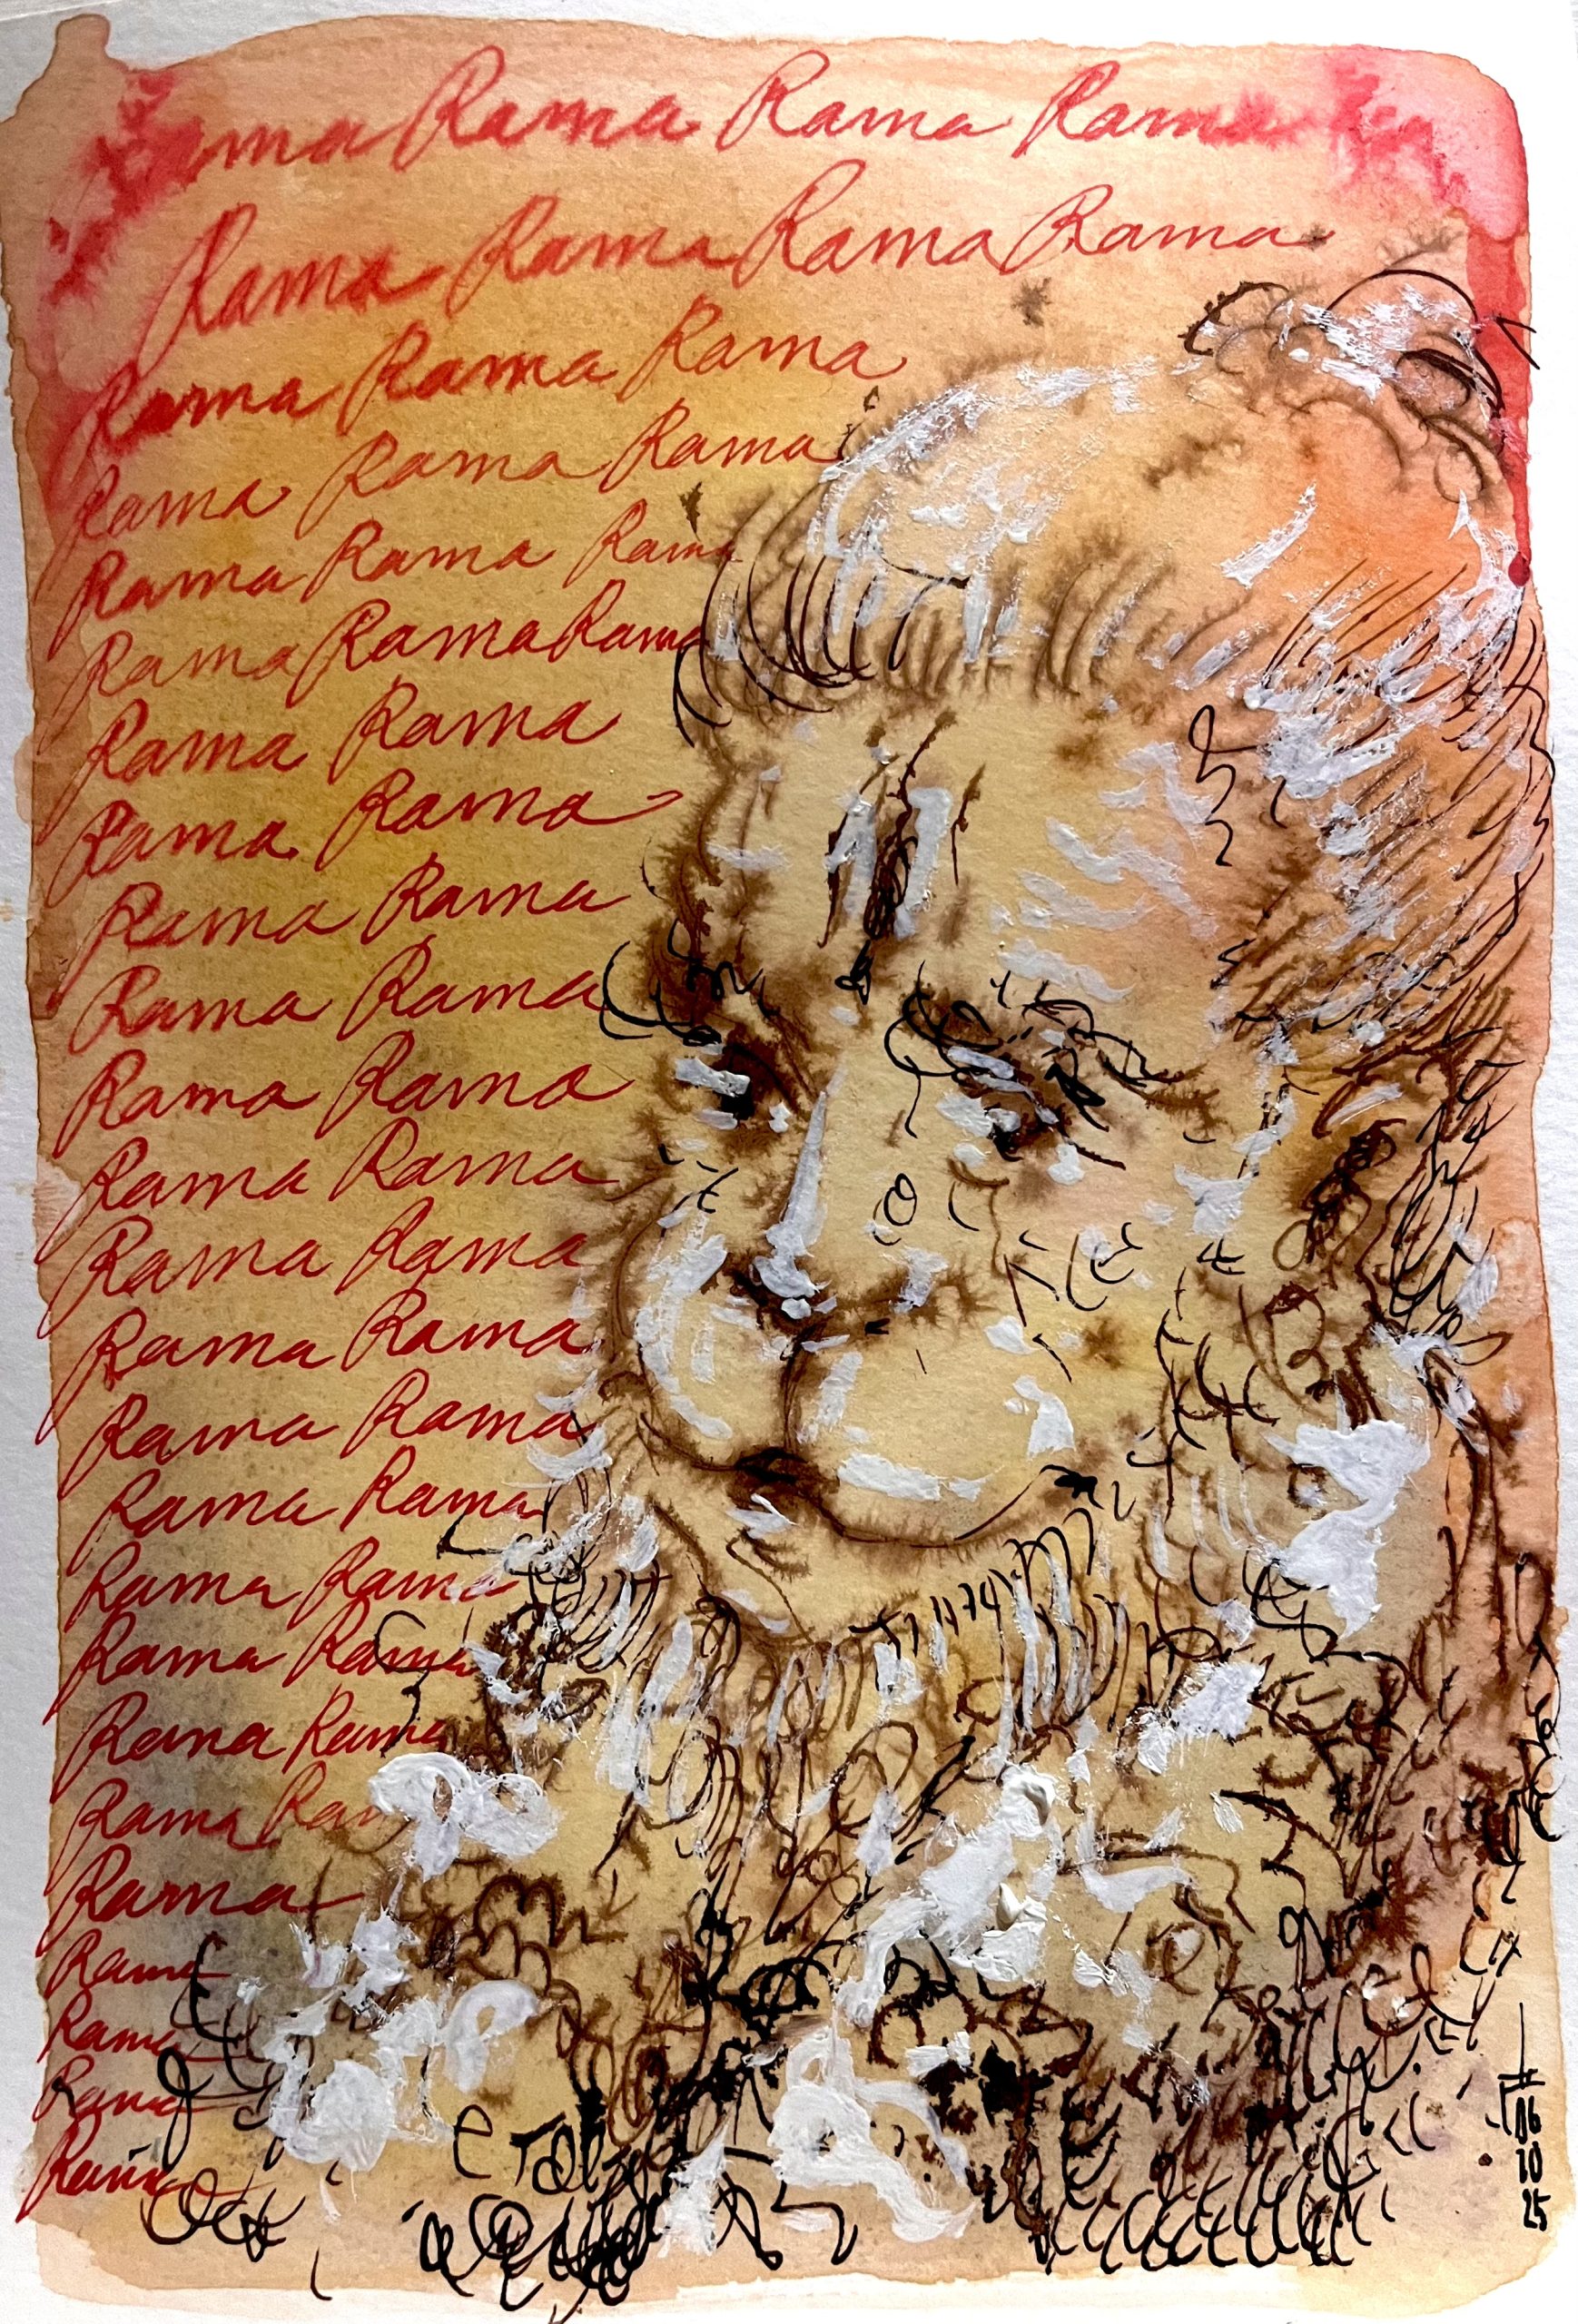 Rama Rama Rama
Rama Rama Rama Rama
Rama Rama Rama
Rama Rama Rama
Rama Rama Rama
Rama Rama Rama
Rama Rama
Rama Rama
Rama Rama
Rama Rama
Rama Rama
Rama Rama
Rama Rama
Rama Rama
Rama Rama
Rama Rama
Rama Rama
Rama Rama
Rama Rama
Rama
Rama
Rama
Rama
Rama
Rama
06
10
25